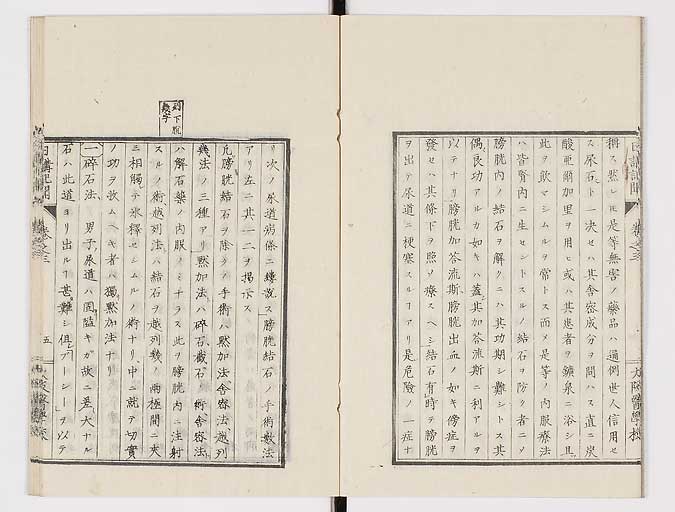 稱ス然レ𪜈是等無害ノ藥品ハ通例世人信用セ
ス尿石ト一决セハ其舎密成分ヲ問ハス直ニ炭
酸亜爾加里ヲ用ヒ或ハ其患者ヲ鑛泉ニ浴シ且
此ヲ飲マシムルヲ常トス而メ是等ノ内服療法
ハ皆腎内ニ生セントスルノ結石ヲ防ク者ニメ
膀胱内ノ結石ヲ解クニハ其功期シ難シトス其
偶良功アルカ如キハ蓋其加荅流斯ニ利アルヲ
以テナリ膀胱加荅流斯膀胱出血ノ如キ傍症ヲ
發セハ其條下ヲ照ソ療スヘシ結石有時ヲ膀胱
ヲ出テ尿道ニ梗塞スルヿアリ是危險ノ一症ナ
日講記聞
卷之三
大阪醫學校
リ次ノ尿道病條ニ詳説ス膀胱結石ノ手術數法
アリ左ニ其一二ヲ掲示ス
凢膀胱結石ヲ除クノ手術ハ黙加法舎密法越列
幾法ノ三種アリ黙加法ハ碎石截石ノ術舎密法
ハ解石藥ノ内服ノミナラス此ヲ膀胱内ニ注射
スルノ術越列法ハ結石ヲ越列幾ノ兩極間ニ夾
三相觸テ氷釋セシムルノ術ナリ中ニ就テ切實
ノ功ヲ收ムヘキ者ハ獨黙加法ナリ
一碎石法 男子尿道ハ固隘キガ故ニ差大ナル
石ハ此道ヨリ出ルヿ甚難シ但
ヲ以テ
列下脱
幾字
日講記聞
卷之三
五